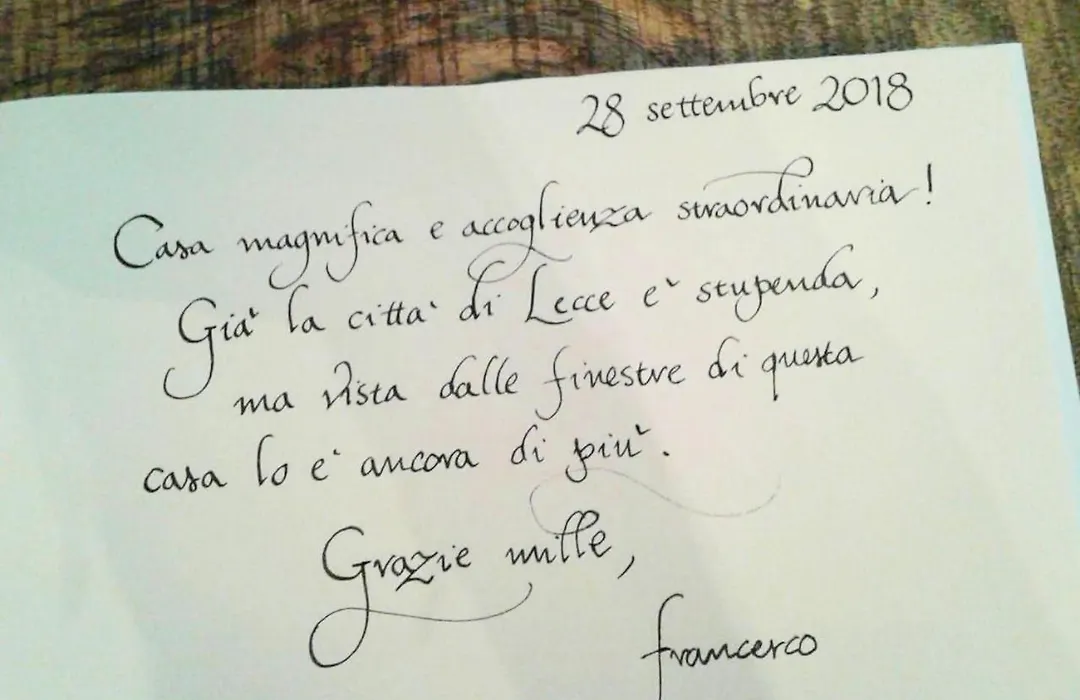 28 settembre 2018
Casa magnifica e accoglienza straordinaria!
Già la città di Lecce è stupenda,
ma vista dalle finestre di questa
casa lo è ancora di più.
Grazie mille,
francesco